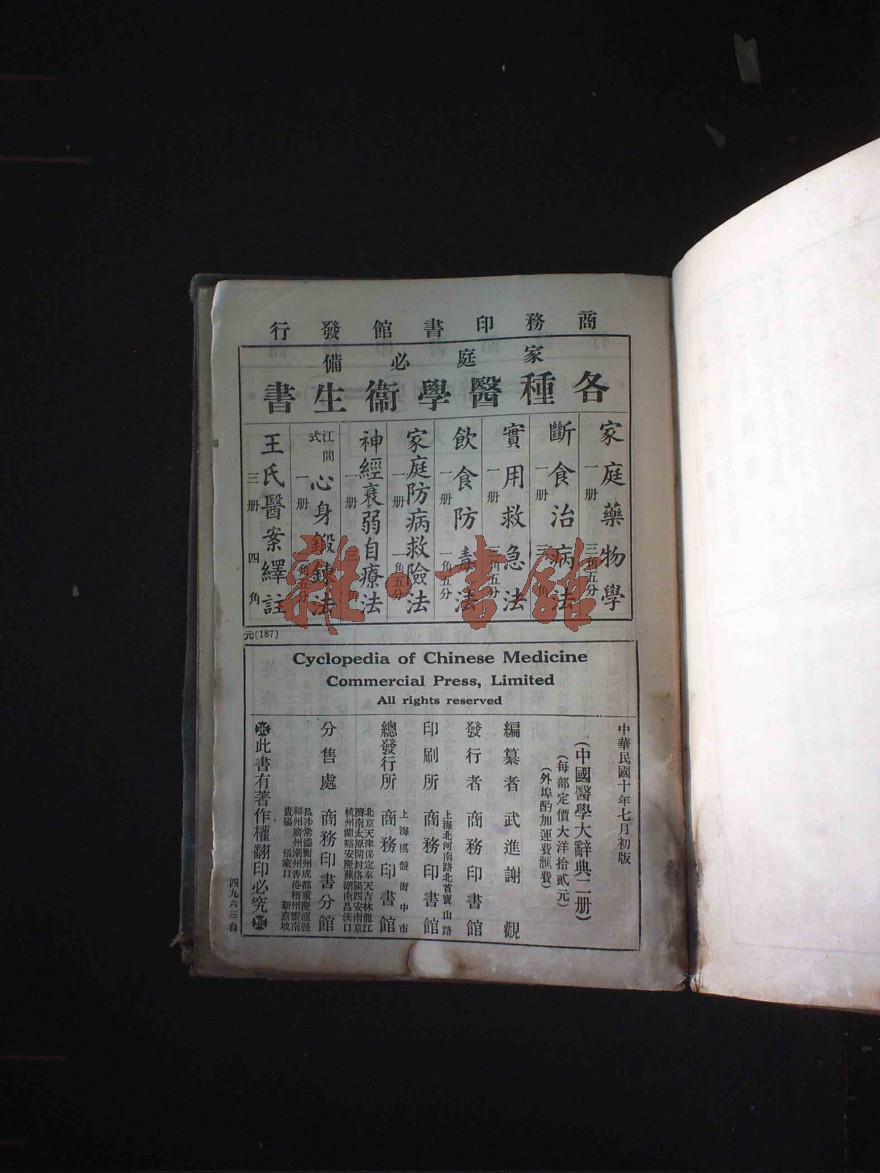 商務印書館發行
家庭必備
各種醫學衞生書
家庭藥物學 一册 三角五分
斷食治病法 一册
實用救急法 一册 三角五分
飲食防毒法 一册
家庭防病救險法 一册 一角五分
神經衰弱自療法 一册
江間式心身鍛鍊法 一册
王氏醫案繹註 三册 四角
元(187)
Cyclopedia of Chinese Medicine
Commercial Press, Limited
All rights reserved
中華民國十年七月初版
(中國醫學大辭典二册)
(每部定價大洋拾貳元)
(外埠酌加運費滙費)
編纂者 武進謝觀
發行者 商務印書館
上海北河南路北首寶山路
印刷所 商務印書館
上海棋盤街中市
總發行所 商務印書館
北京天津保定奉天吉林龍江
濟南太原開封洛陽西安南京
杭州蘭谿安慶蕪湖南昌漢口
分售處 商務印書分館
長沙常德衡州成都重慶瀘縣
福州廣州潮州香港梧州雲南
貴陽 張家口 新嘉坡
此書有著作權翻印必究
四九六三自
雜·書館